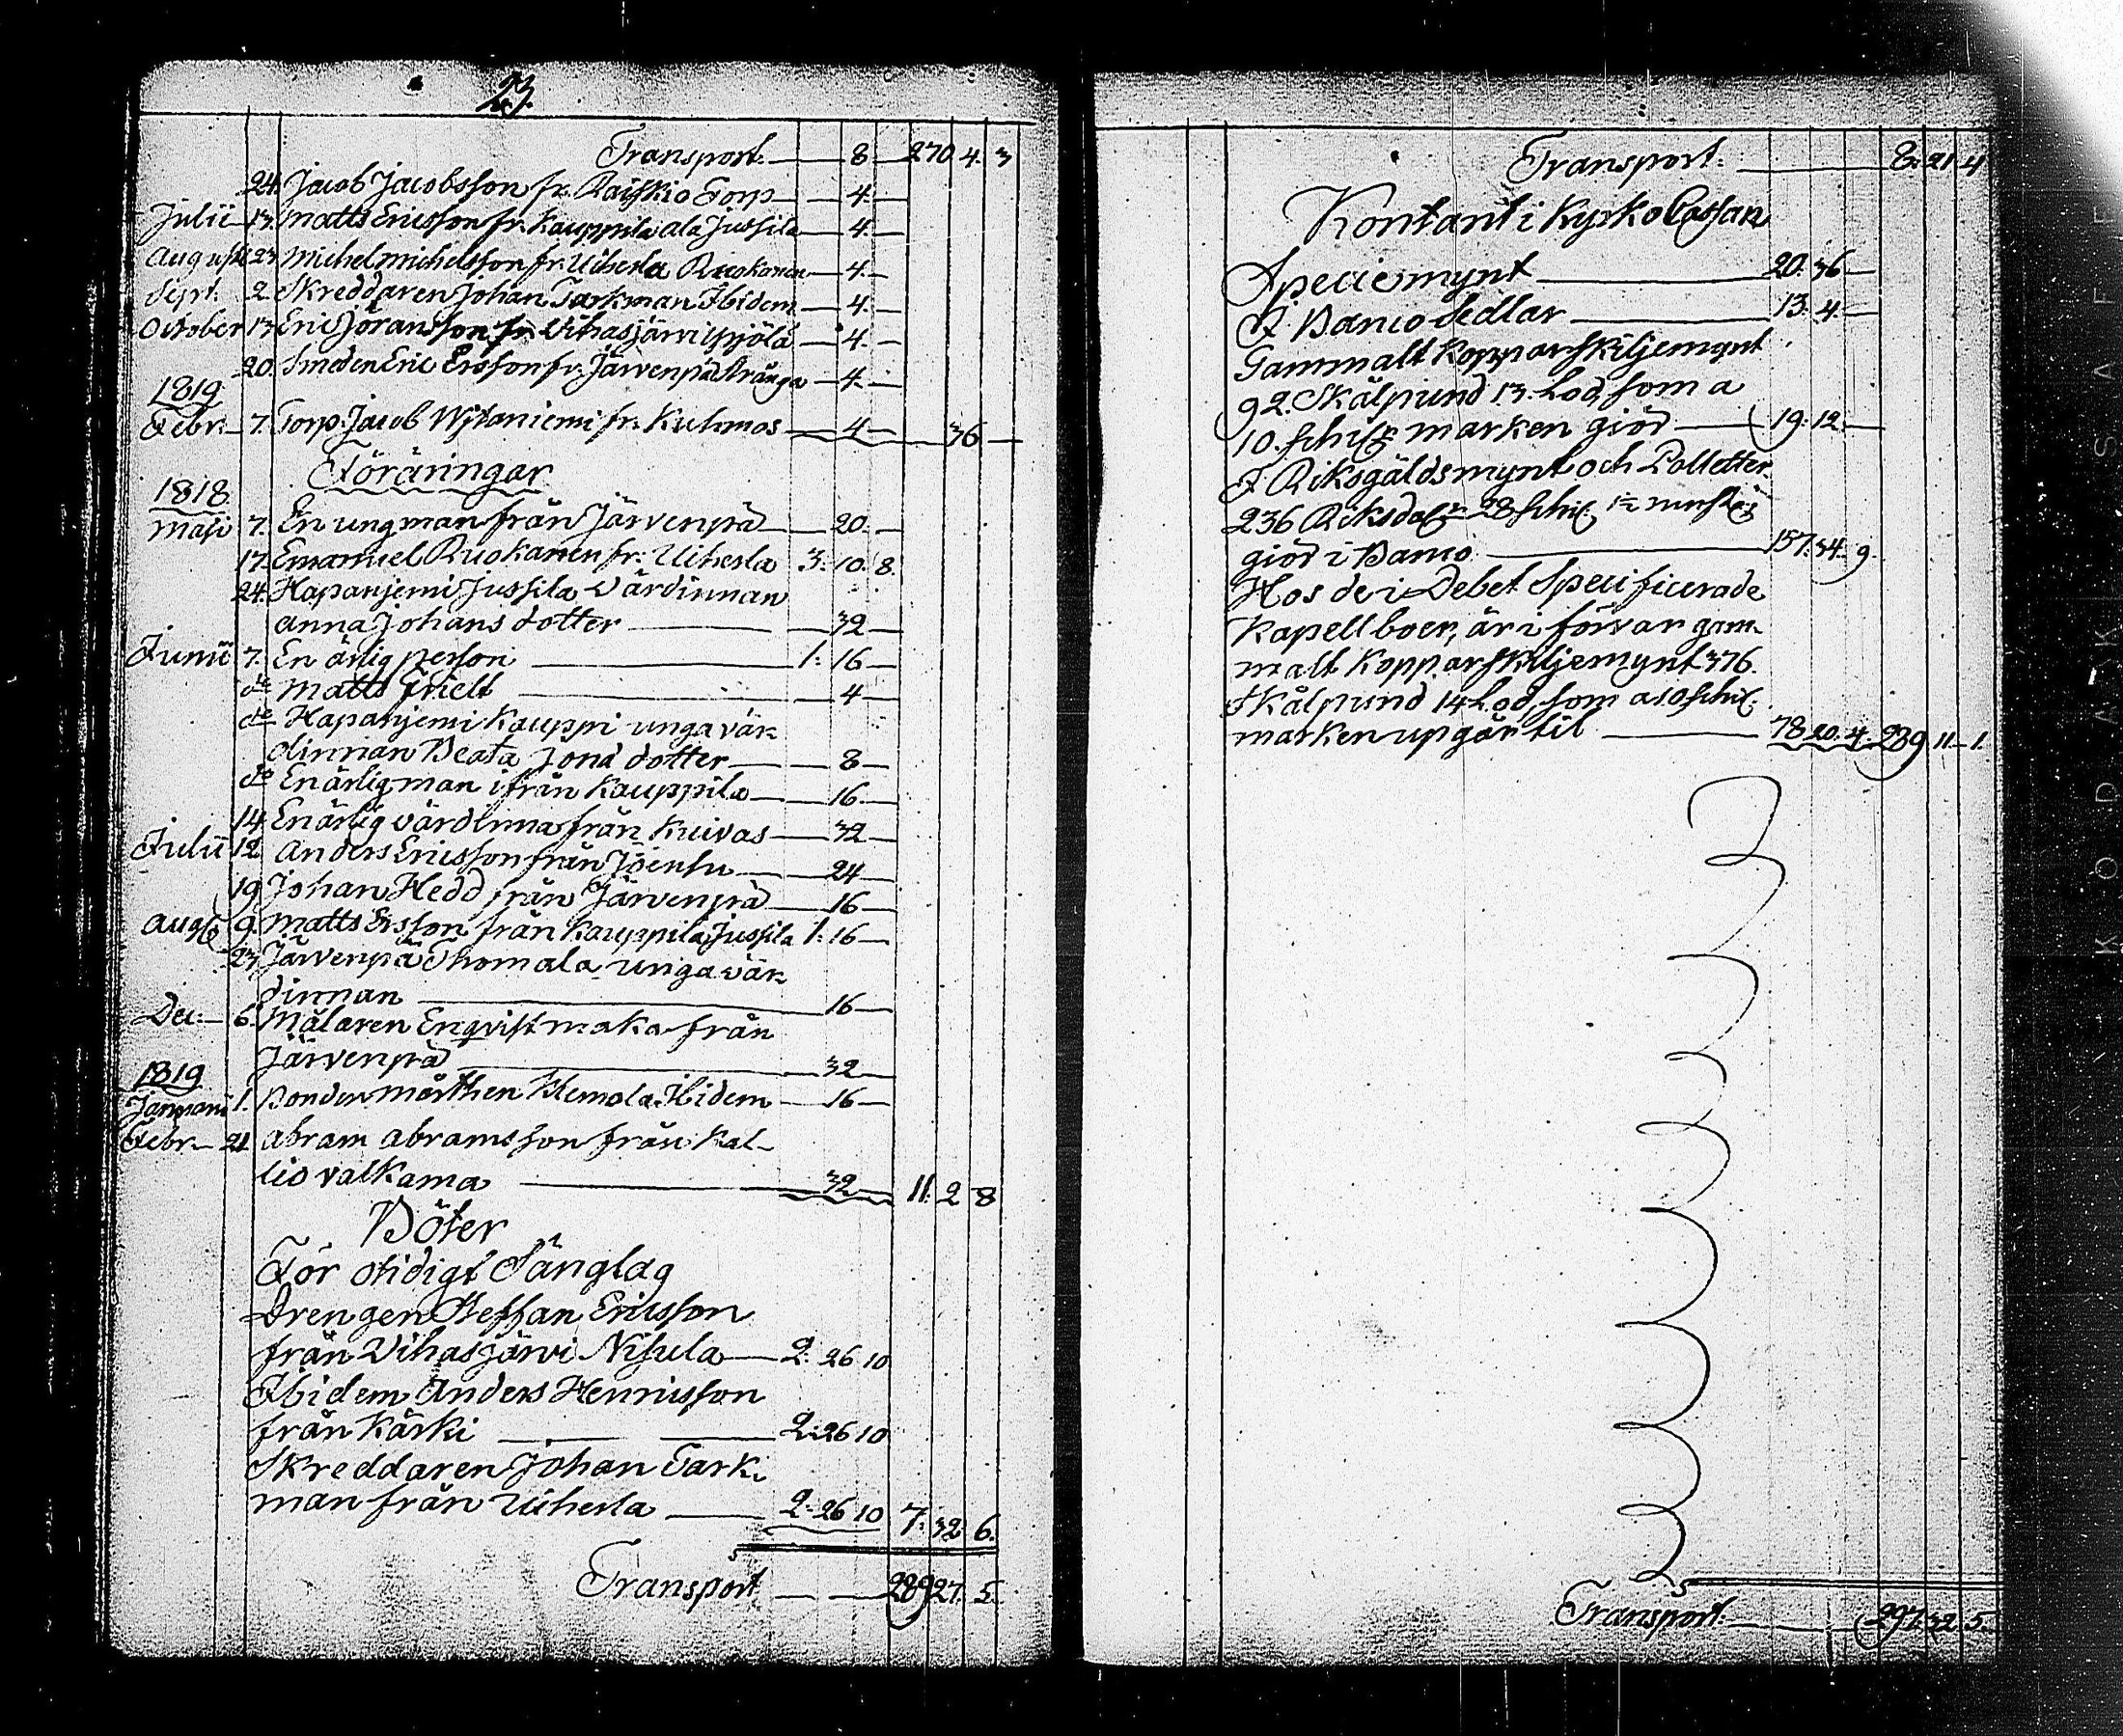 23.
Transport. — 8 — 270. 4. 3
24. Jacob Jacobsson fr. Raiskio Torp — 4. —
Julii 13. Matts Ericsson fr. Kauppila ala Jussila — 4. —
Augusti 23 Michel Michelsson fr. Uiherla Ruokanen — 4. —
Sept. 2. Skreddaren Johan Tarkman Ibidem — 4. —
October 13 Eric Jöransson fr. Vihasjärvi — 4. —
20. Smeden Eric Ersson fr. Järvenpä Kränga — 4. —
1819
Febr. 7. Torp. Jacob Wjtaniemi fr. Kuhmos — 4 — 36 —
Föräringar
1818
Maji 7. En ung man från Järvenpä — 20. —
17. Emanuel Ruokanen fr. Uiherla 3: 10. 8.
24. Hapanjemi Jussila Värdinnan
Anna Johans dotter — 32 —
Junii 7. En ärlig person — 1: 16 —
do Matts Frielt — 4 —
do Hapanjemi Kauppi unga vär
dinnan Beata Jona dotter — 8 —
do En ärlig man ifrån Kauppila — 16 —
14 En ärlig värdinna från Kuivas — 32 —
Julii 12 Anders Ericsson från Joensu — 24 —
19 Johan Hedd från Järvenpä — 16 —
Aug. 9. Matts Ersson från Kauppila Jussila 1: 16 —
23 Järvenpä Thomala unga vär
dinnan — 16 —
Dec: 6. Målaren Enqvist maka från
Järvenpä — 32 —
1819
Januarii 1. Bonden Mårthen Klemola Ibidem — 16 —
Febr. 21 Abram Abramsson från Kal-
lio Valkama — 32 — 11. 2 8
Böter
För otidigt Sänglag
Drengen Steffan Ericsson
från Vihasjärvi Nisula — 2: 26 10
Ibidem Anders Henricsson
från Kärki — 2: 26 10
Skreddaren Johan Tark-
man från Uiherla — 2: 26 10 7: 32 6.
Transport — 289 27. 5.
Transport. — 8: 21 4
Kontant i Kyrko Cassan
Speciemynt — 20: 36 —
I Banco Sedlar — 13: 4 —
Gammalt Kopparskiljemynt
92. Skålpund 13. Lod, som a
10. schil. marken giör — 19: 12. —
I Riksgäldsmynt och Polletter
236 Riksdaler 28 schil.
giör i Banco — 157: 34. 9.
Hos de i Debet Specificerade
Kapellboer, är i förvar gam-
malt Kopparskiljemynt 376.
Skålpund 14 Lod, som a 10 schil.
marken upgår til — 78 20. 4. 289 11. 1.
Transport. — 297. 32. 5.